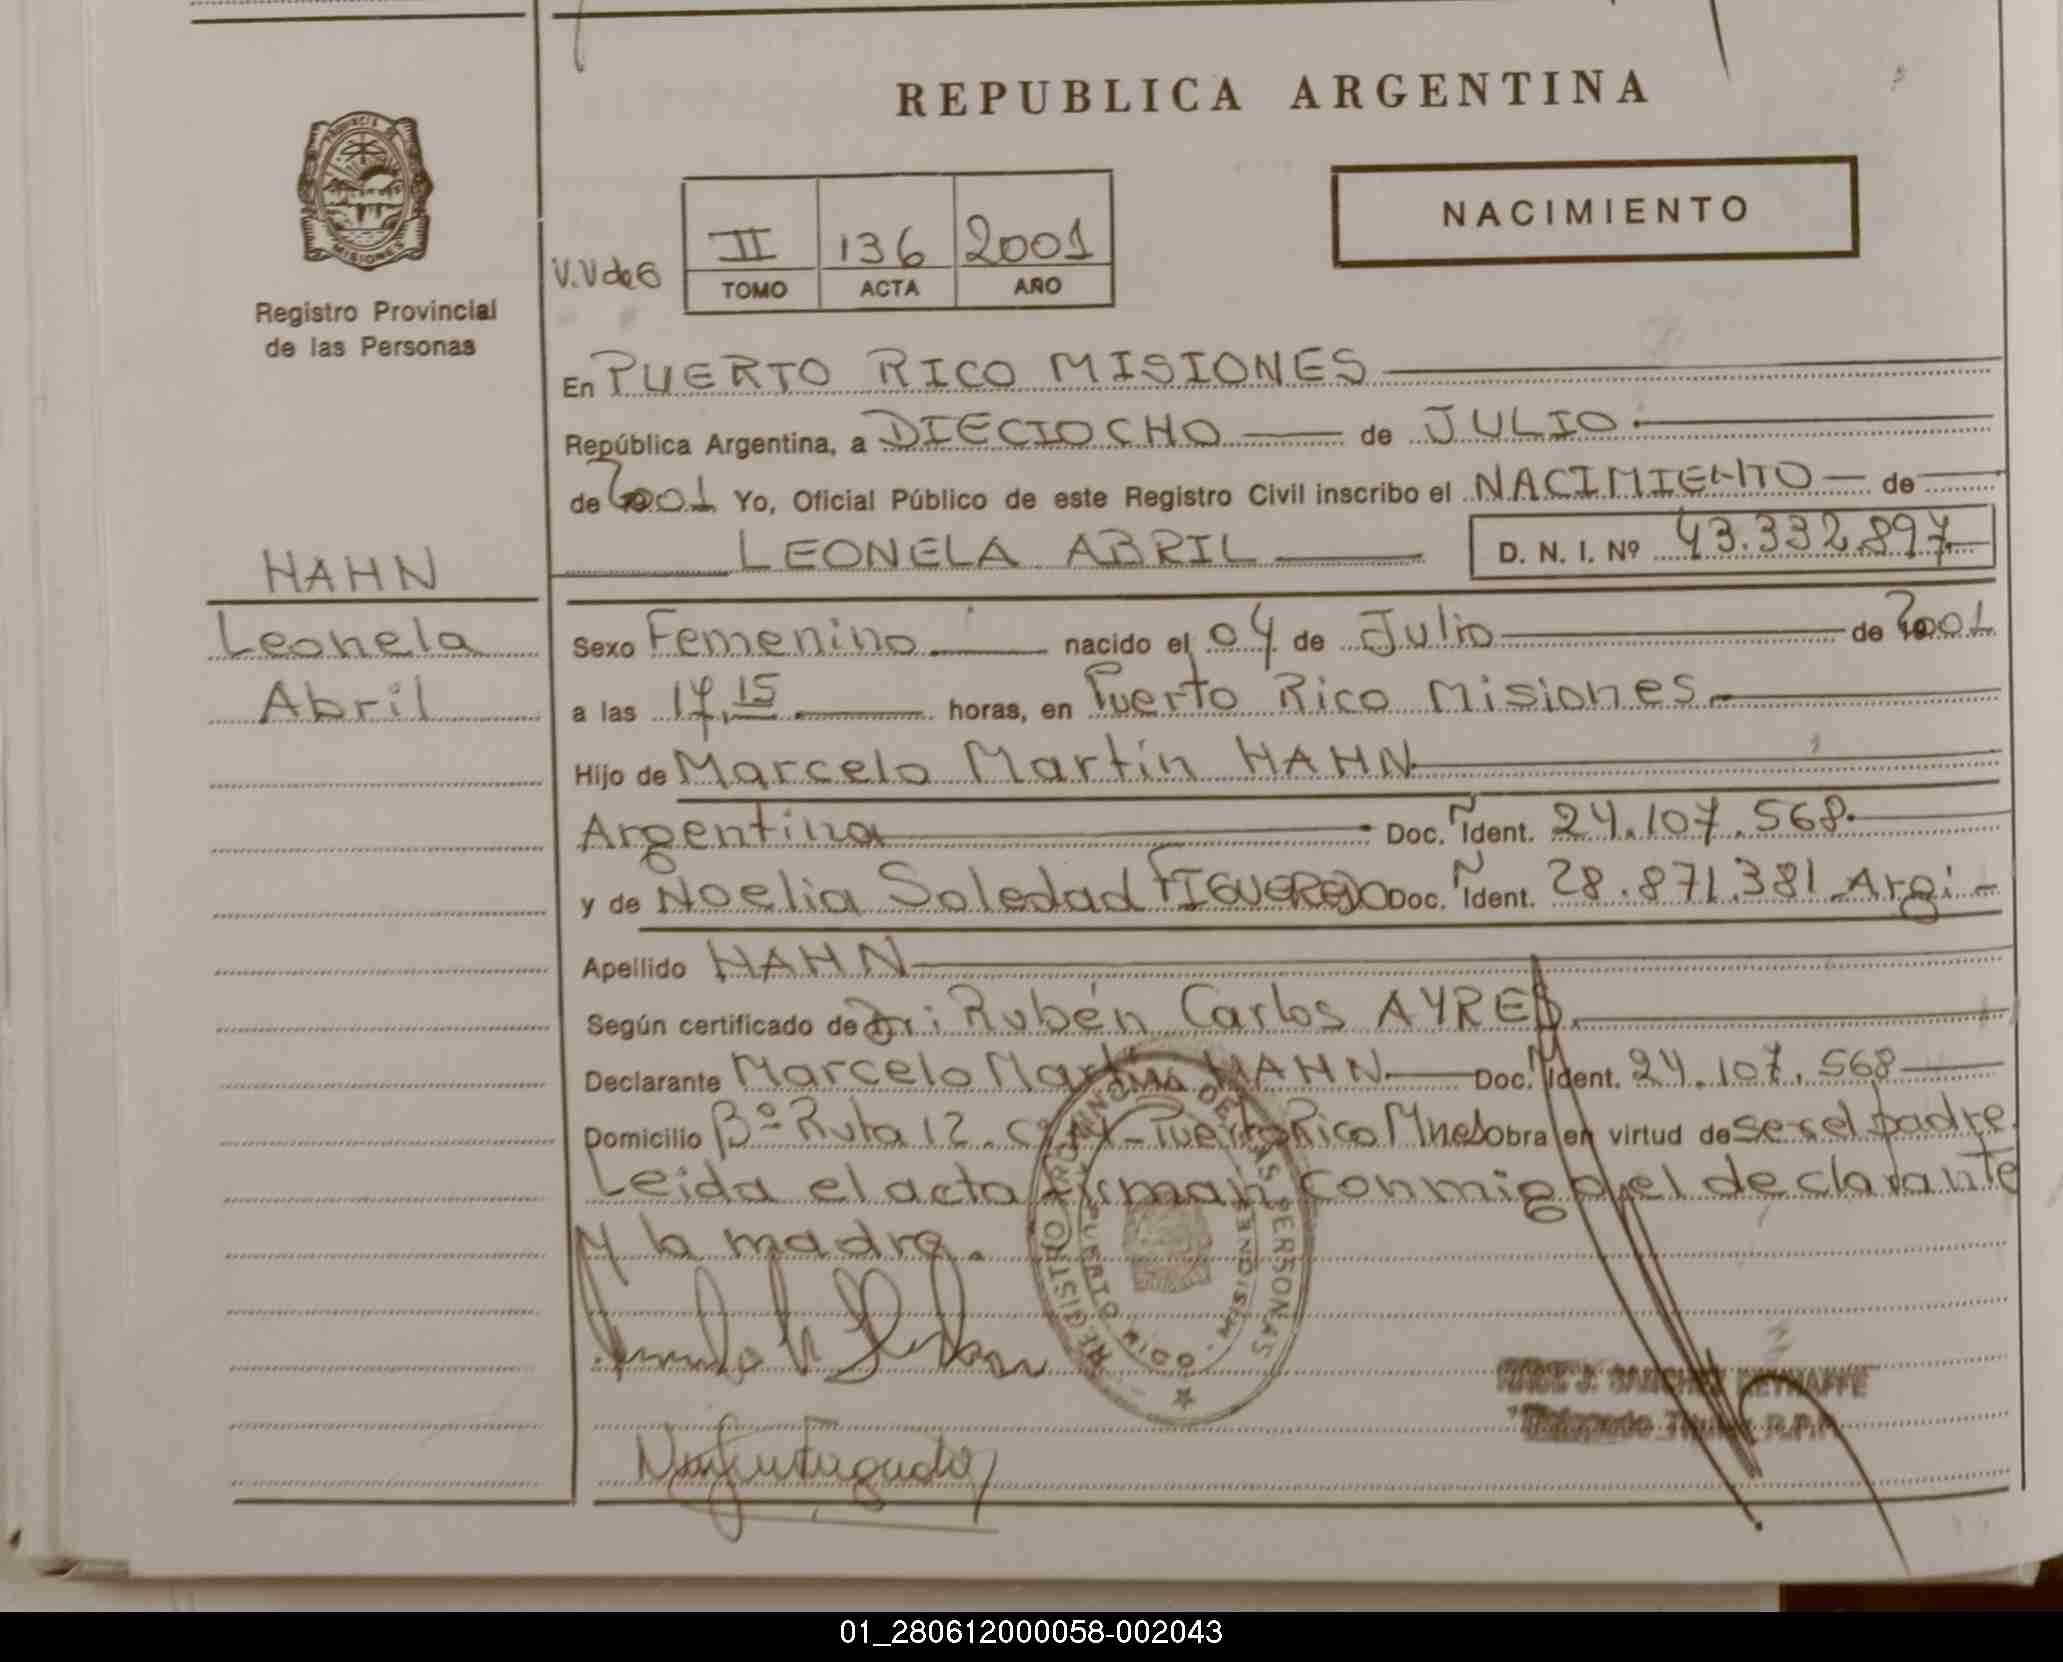 REPUBLICA ARGENTINA
NACIMIENTO
PROVINCIA DE
MISIONES
Registro Provincial
de las Personas
V.V de 6
II 136 2001
TOMO ACTA AÑO
En PUERTO RICO MISIONES
República Argentina, a DIECIOCHO de JULIO
de 2001 Yo, Oficial Público de este Registro Civil inscribo el NACIMIENTO de
LEONELA ABRIL D. N. I. Nº 43.332.897
HAHN
Leonela
Abril
Sexo Femenino nacido el 04 de Julio de 2001
a las 17,15 horas, en Puerto Rico Misiones
Hijo de Marcelo Martín HAHN
Argentina Doc. Ident. 24.107.568
y de Noelia Soledad FIGUEREDO Doc. Ident. 28.871.381 Arg
Apellido HAHN
Según certificado de Dr: Rubén Carlos AYRES
Declarante Marcelo Martín HAHN Doc. Ident. 24.107.568
Domicilio Bº Ruta 12 Puerto Rico Mnes Obra en virtud de ser el padre
Leida el acta firman conmigo el declarante
y la madre.
REGISTRO PROVINCIAL DE LAS PERSONAS
PUERTO RICO - MISIONES
01_280612000058-002043